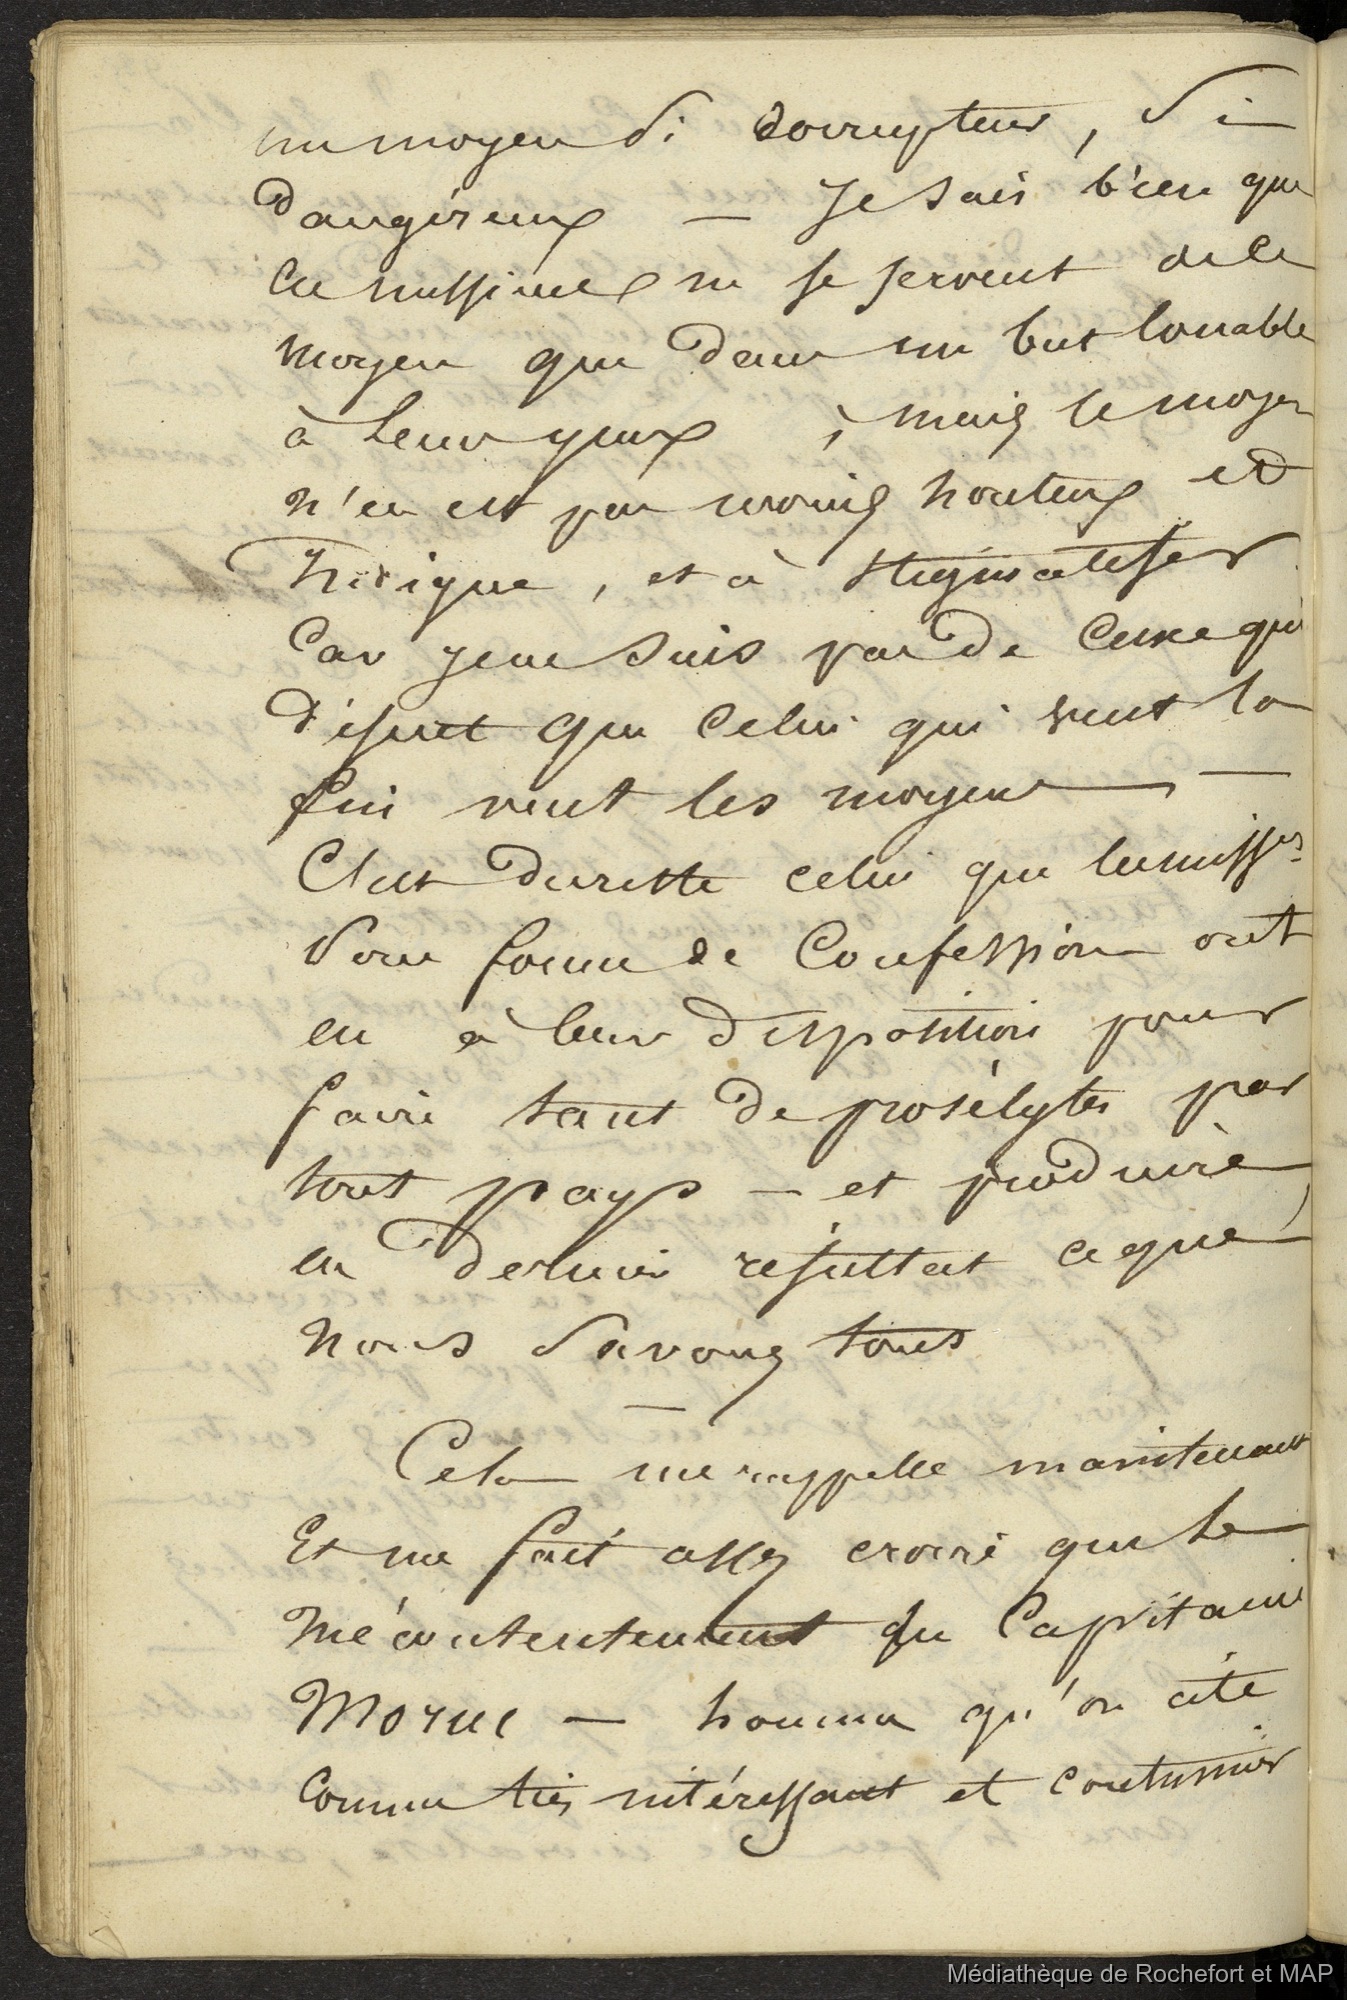 un moyen si corrupteur, si
dangéreux — Je sais bien que
ces missires ne se servent de ce
moyen que dans un but louable
à leurs yeux ; mais le moyen
n'en est pas moins honteux et
inique, et à stigmatiser
Car je ne suis pas de ceux qui
disent que celui qui veut la
fin veut les moyens —
C'est du reste celui que les missres
sous forme de Confession ont
eu à leur disposition pour
faire tant de prosélytes par
tout pays — et produire
en dernier résultat ce que
nous savons tous
—
Cela me rappelle maintenant
Et me fait assez croire que le
mécontentement du Capitaine
— homme qu'on cite
comme très intéressant et coutumier
Médiathèque de Rochefort et MAP